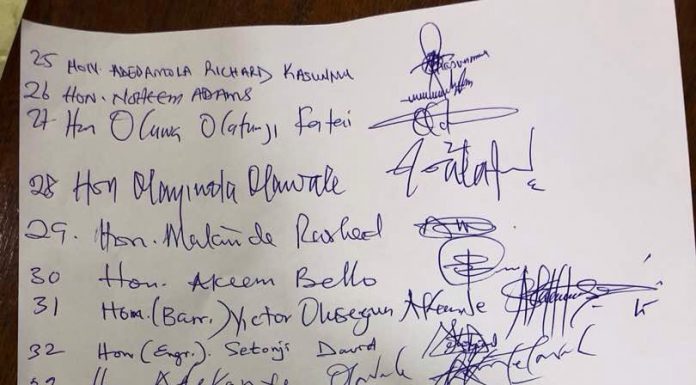 25 HON. ADEDAMOLA RICHARD KASUNMU
26 HON. NOHEEM ADAMS
27 Hon Oluwa Olatunji Fatai
28 Hon Olayinola Olawale
29. Hon. Makinde Rasheed
30 Hon. Akeem Bello
31 Hon. (Barr.) Victor Olusegun Akande
32 Hon (Engr.). Setonji David